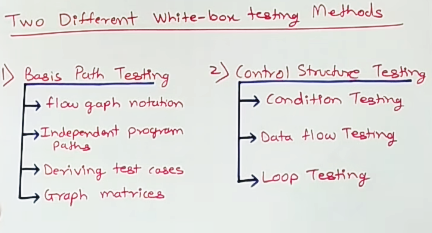 Two Different White-box testing Methods
1) Basis Path Testing
flow gaph notation
Independent program
paths
Deriving test cases
Graph matrices
2) Control Structure Testing
Condition Testing
Data flow Testing
Loop Testing